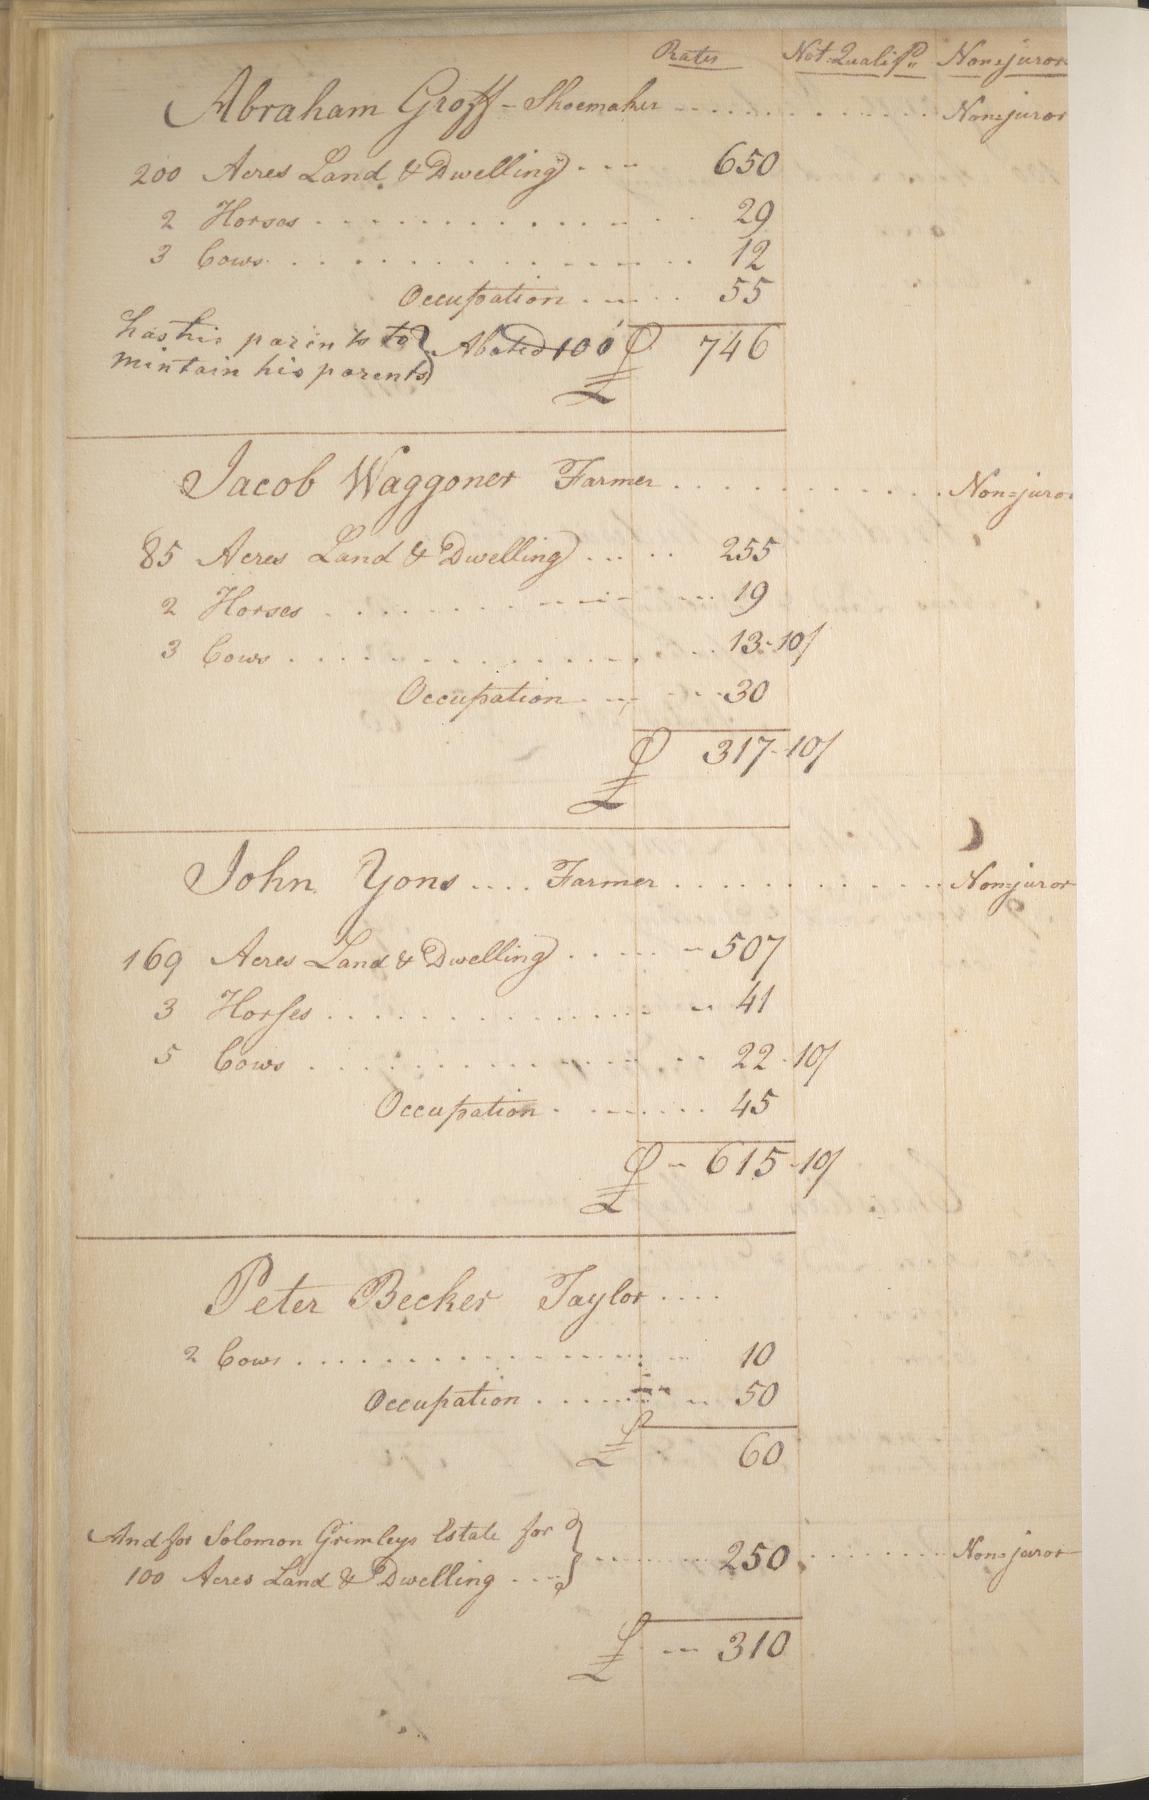 Rates Not Qualif.d Non=juror
Abraham Groff - Shoemaker ............ Non=juror
200 Acres Land & Dwelling ... 650
2 Horses ............ 29
3 Cows ............ 12
Occupation ..... 55
has his parints to } Abated 100 £ 746
mintain his parents
Jacob Waggoner Farmer ............ Non=juror
85 Acres Land & Dwelling ..... 255
2 Horses ............ 19
3 Cows ............ 13-10/
Occupation ..... 30
£ 317-10/
John Yons .... Farmer ............ Non=juror
169 Acres Land & Dwelling ..... 507
3 Horses ............ 41
5 Cows ............ 22-10/
Occupation ..... 45
£ - 615-10/
Peter Becker Taylor ....
2 Cows ............ 10
Occupation ....... 50
£ 60
And for Solomon Grimleys Estate for } ....... 250 ....... Non=juror
100 Acres Land & Dwelling ....
£ --- 310